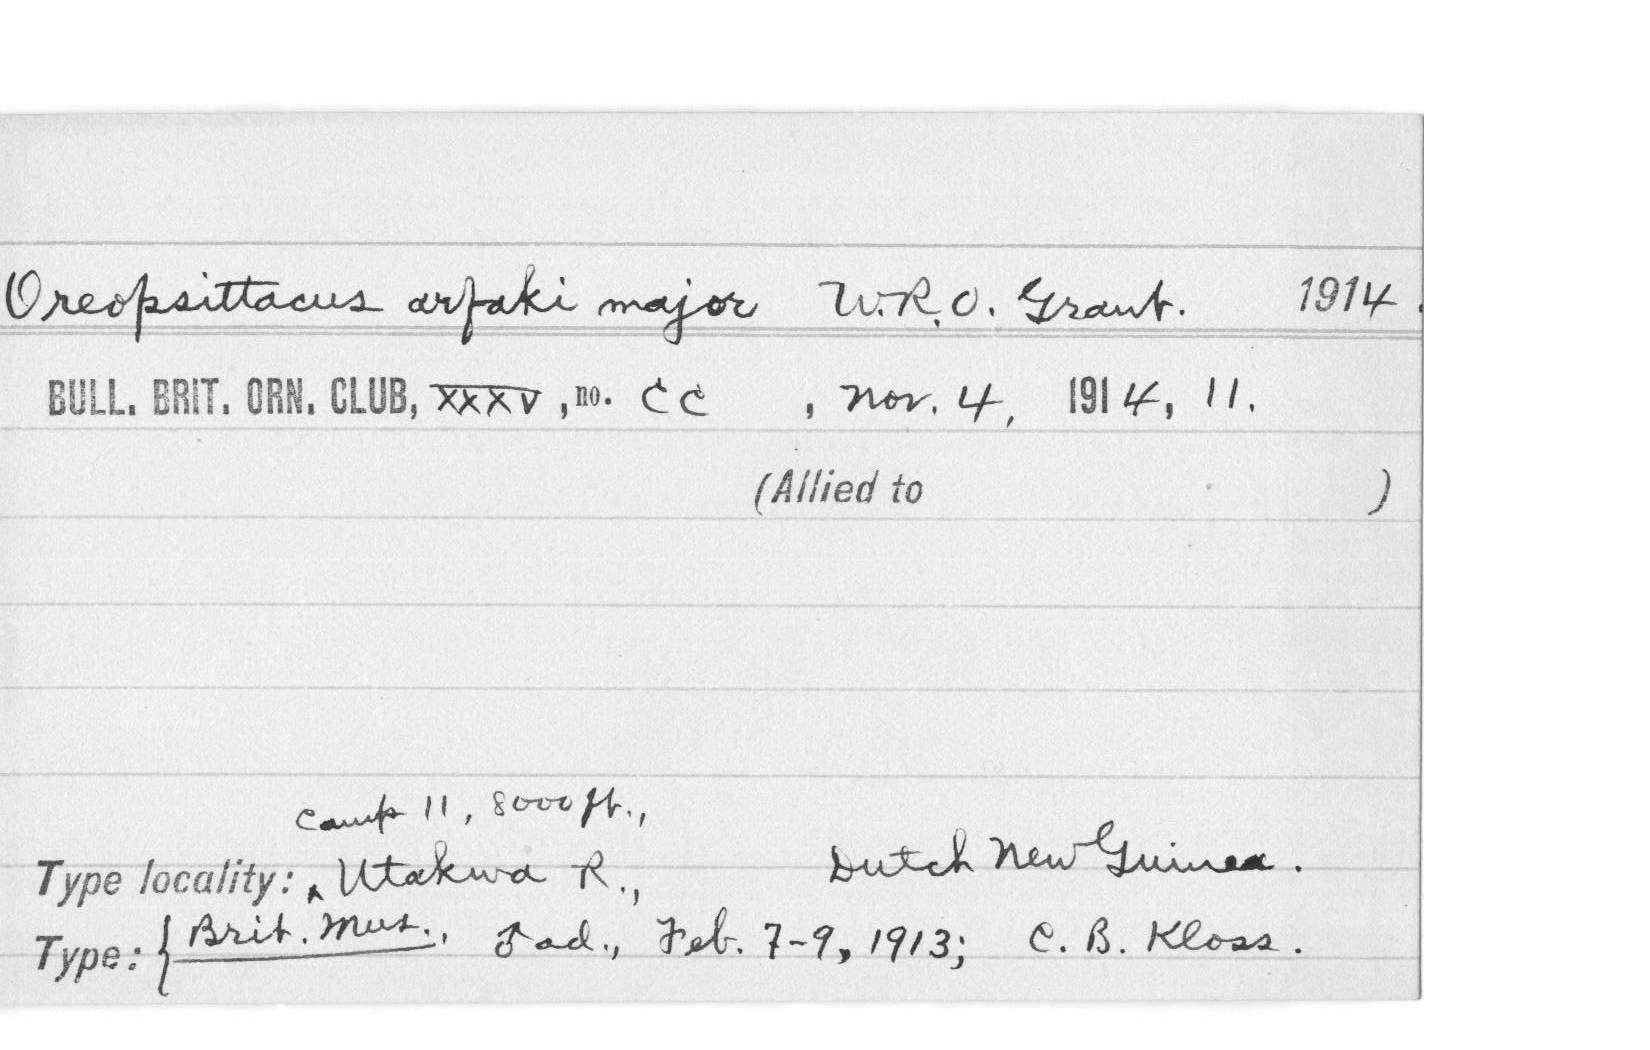 Oreopsittacus arfaki major W.R.O. Grant. 1914.
BULL. BRIT. ORN. CLUB, XXXV, no. CC , Nov. 4, 1914, 11.
(Allied to )
Camp 11, 8000 ft.,
Type locality: ^ Utakwa R., Dutch New Guinea.
Type: { Brit. Mus., ♂ ad., Feb. 7-9, 1913; C. B. Kloss.